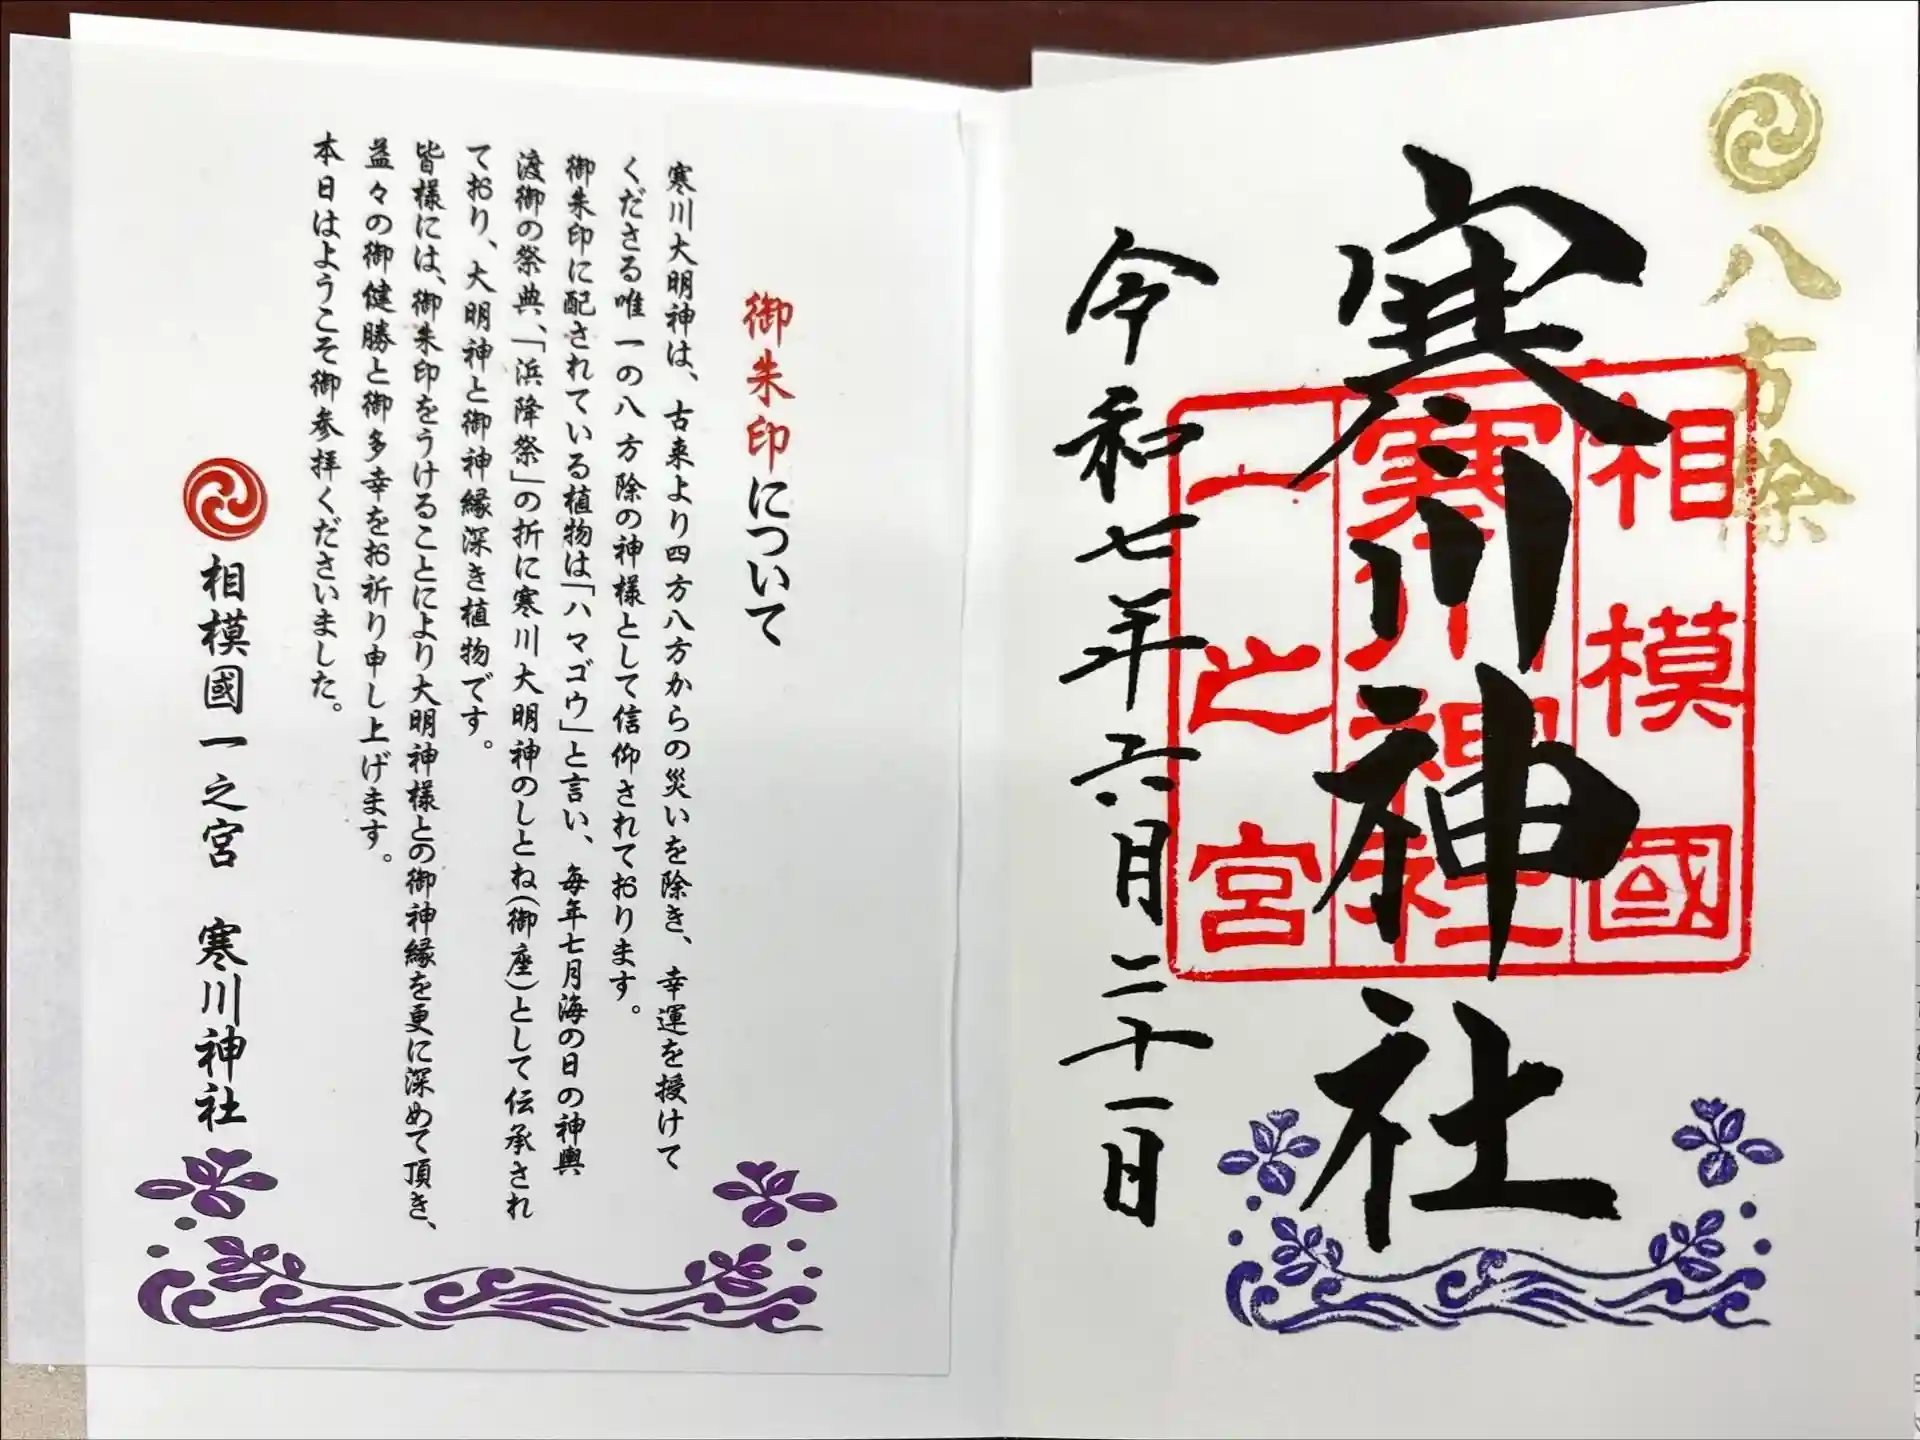 八方除
寒川神社
相模國
寒川神社
一之宮
令和七年六月二十一日
御朱印について
寒川大明神は、古来より四方八方からの災いを除き、幸運を授けて
くださる唯一の八方除の神様として信仰されております。
御朱印に配されている植物は「ハマゴウ」と言い、毎年七月海の日の神輿
渡御の祭典、「浜降祭」の折に寒川大明神のしとね(御座)として伝承され
ており、大明神と御神縁深き植物です。
皆様には、御朱印をうけることにより大明神様との御神縁を更に深めて頂き、
益々の御健勝と御多幸をお祈り申し上げます。
本日はようこそ御参拝くださいました。
相模國一之宮 寒川神社